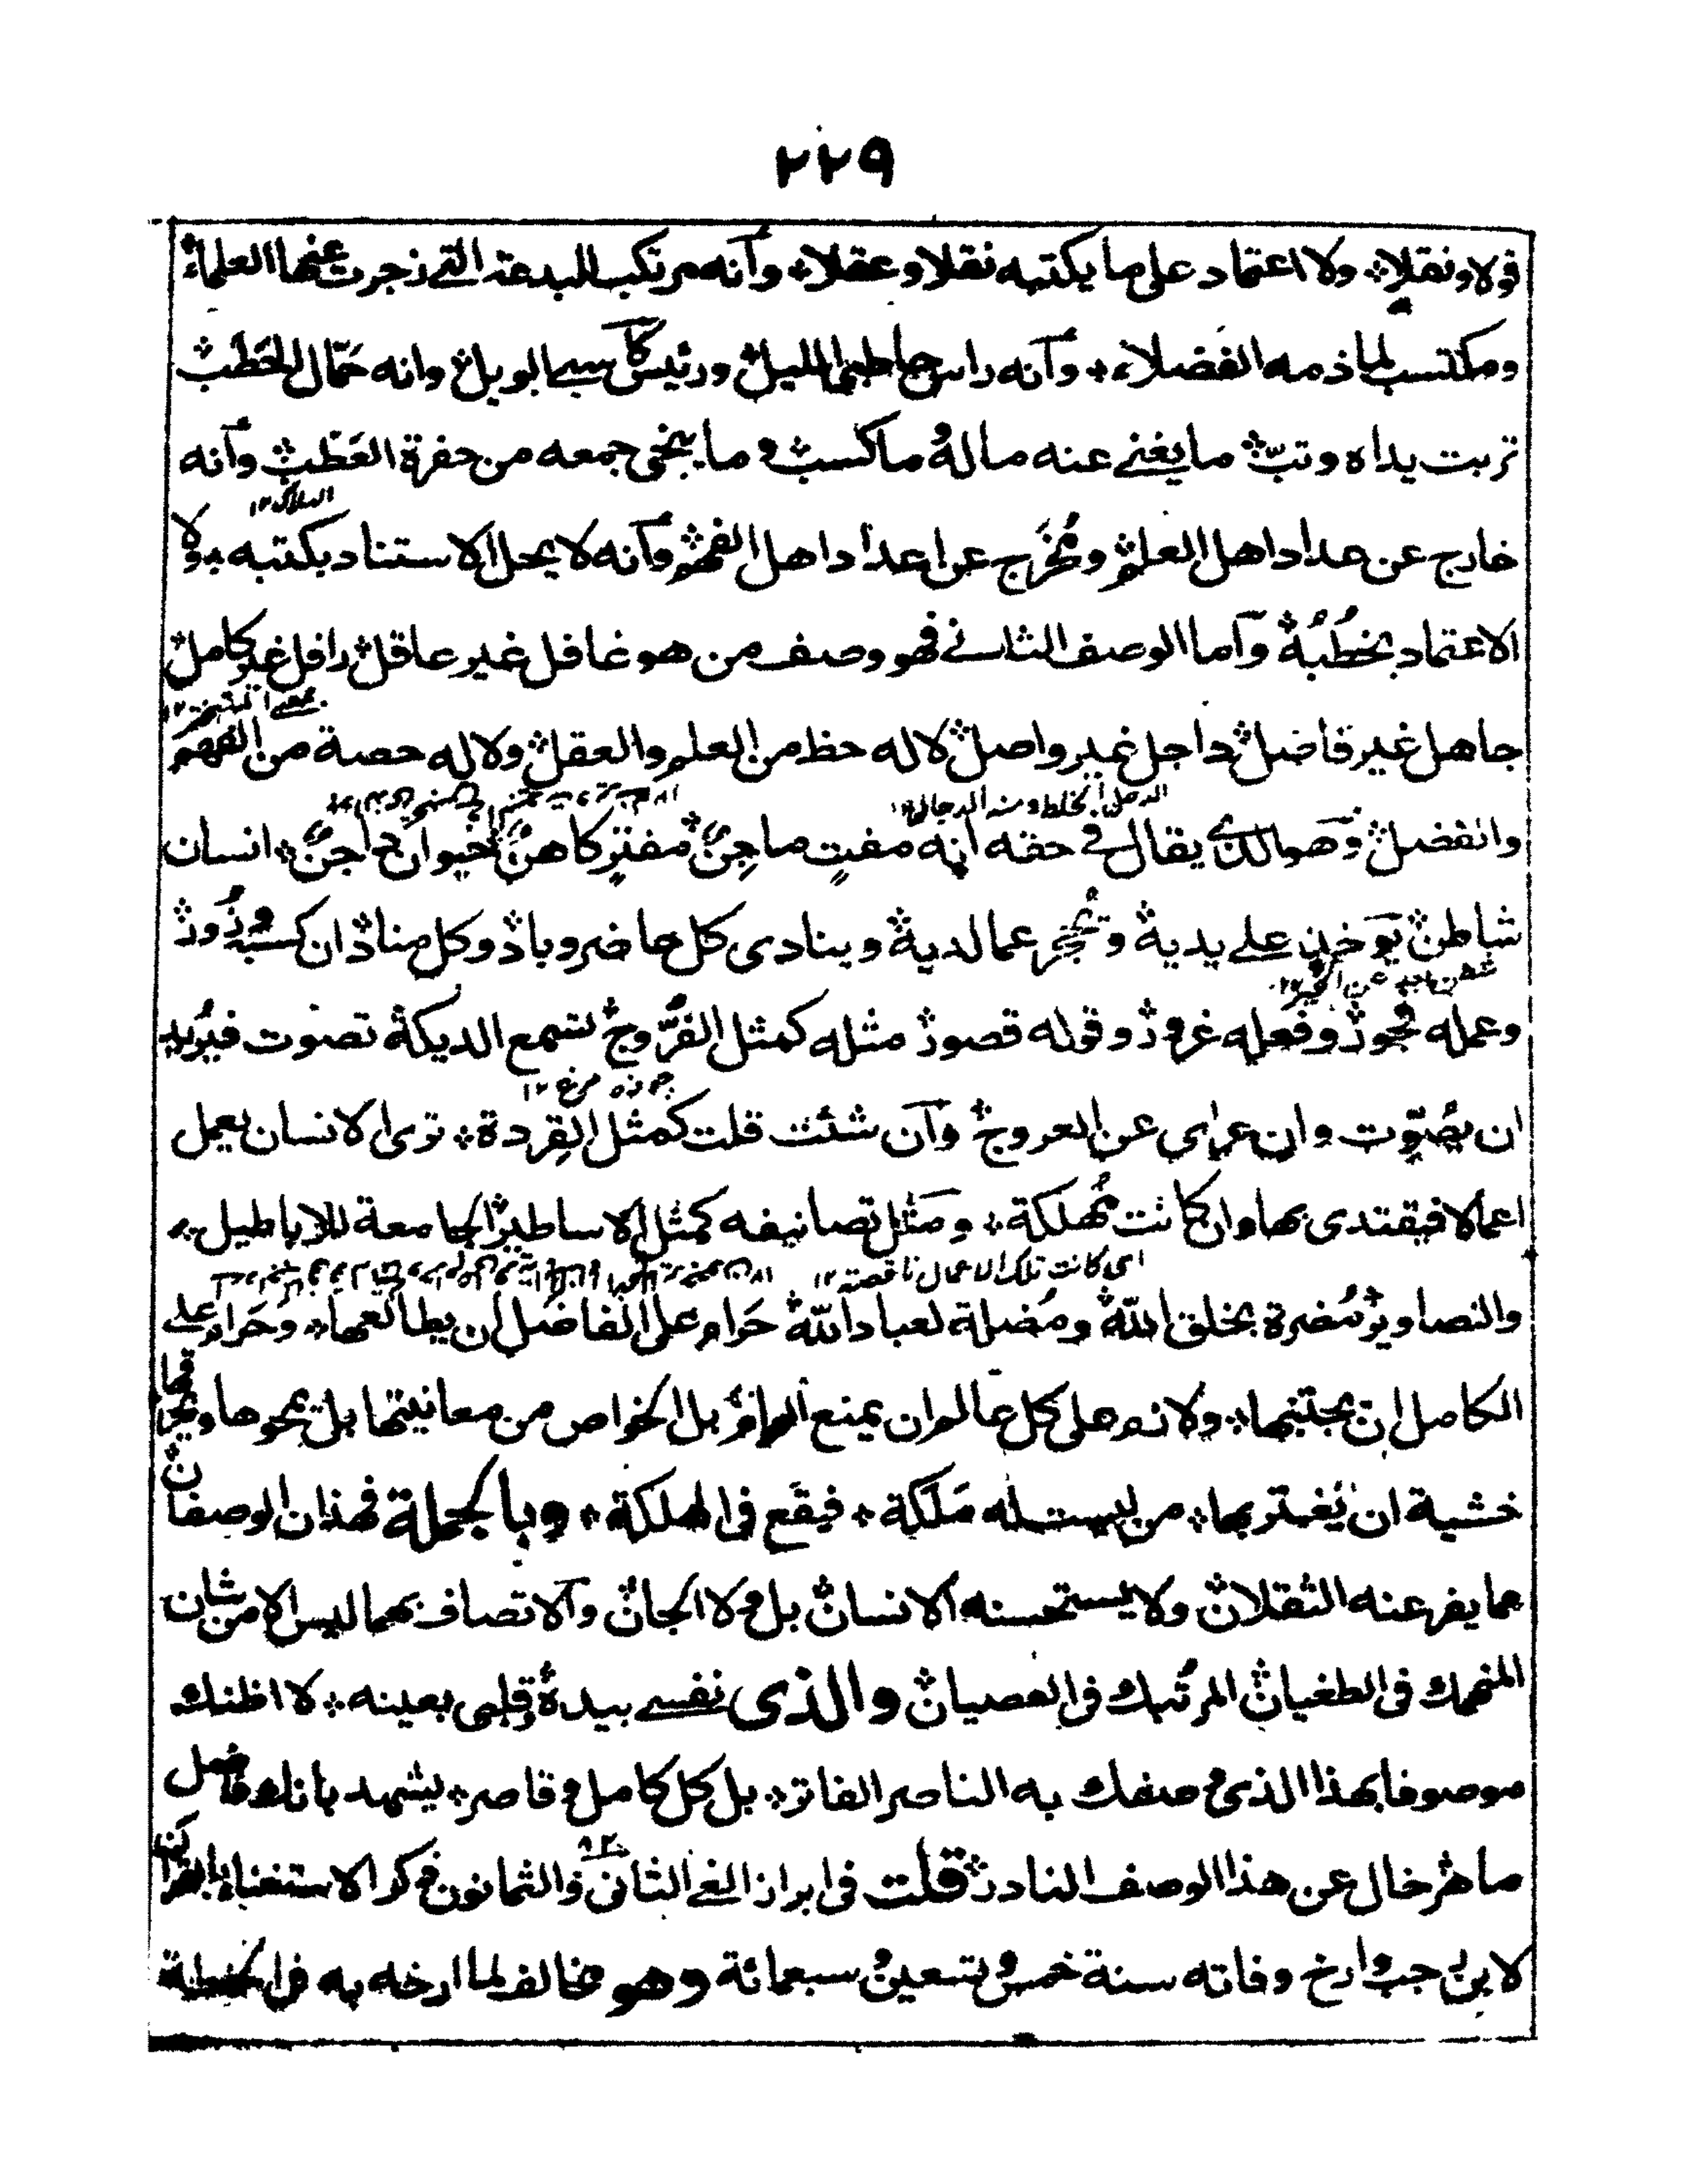 ٢٢٩
قولا ونقلا ولا اعتماد على ما يكتبه نقلا وعقلا وأنه مرتكب للبدعة التي زجرت عنها العلماء
ومكتسب لما ذمه الفضلاء وأنه راس حاطبي الليل ورئيس كاسبي الويل وانه حمّال الحَطَب
تربت يداه وتبّ ما يغني عنه ماله وما كسب وما ينجى جمعه من حفرة العَطَب وأنه
الهلاك ١٢
خارج عن عداد اهل العلم ومُخرَج عن اعداد اهل الفهم وأنه لا يحل الاستناد بكتبه ولا
الاعتماد بخُطُبه وأما الوصف الثاني فهو وصف من هو غافل غير عاقل رافل غير كامل
جاهل غير فاضل داجل غير واصل لا له حظ من العلم والعقل ولا له حصة من الفهم
الدجل الخلط ومنه الدجال ١٢
والفضل وهو الذي يقال في حقه أنه مفتٍ ماجِنٌ مفترٍ كاهنٌ حيوان داجنٌ انسان
شاطن يوخذ على يديه ويُحجر عما لديه وينادى كل حاضر وباد وكل مناد ان كسبه زُور
شطن بعد عن الخير ١٢
وعمله فجور وفعله غرور وقوله قصور مثله كمثل الفرُّوج تسمع الديكة تصوت فيُريد
چوزه مرغ ١٢
ان يُصَوِّت وان عرى عن العروج وآن شئت قلت كمثل القِردة ترى الانسان يعمل
اعمالا فيقتدى بها وان كانت مُهلكة ومَثَل تصانيفه كمثل الاساطير الجامعة للاباطيل
اى كانت تلك الاعمال ناقصة ١٢
والتصاوير مُضرة بخلق الله ومُضلة لعباد الله حَرام على الفاضل ان يطالعها وحَرام على
الكامل ان يجتنبها ولازم على كل عالم ان يمنع العوام بل الخواص من معاينتها بل يمحوها ويحرقها
خشية ان يَغتر بها من ليست له مَلَكة فيقَع فى الهلكة وبالجملة فهذان الوصفان
مما يفر عنه الثقلان ولا يستحسنه الانسان بل ولا الجان وآلاتصاف بهما ليس الا من شان
المنهمك فى الطغيان المرتبك فى العصيان والذى نفسي بيده وقلبى بعينه لا اظنك
موصوفا بهذا الذى وصفك به الناصر الفاتر بل كل كامل وقاصر يشهد بانك فاضل
ماهر خال عن هذا الوصف النادر قلت فى ابراز الغي الثانى والثمانون ذكر الاستغناء بالقرآن
لابن رجب وارخ وفاته سنة خمس وتسعين وسبعمائة وهو مخالف لما ارخه به فى الحطة